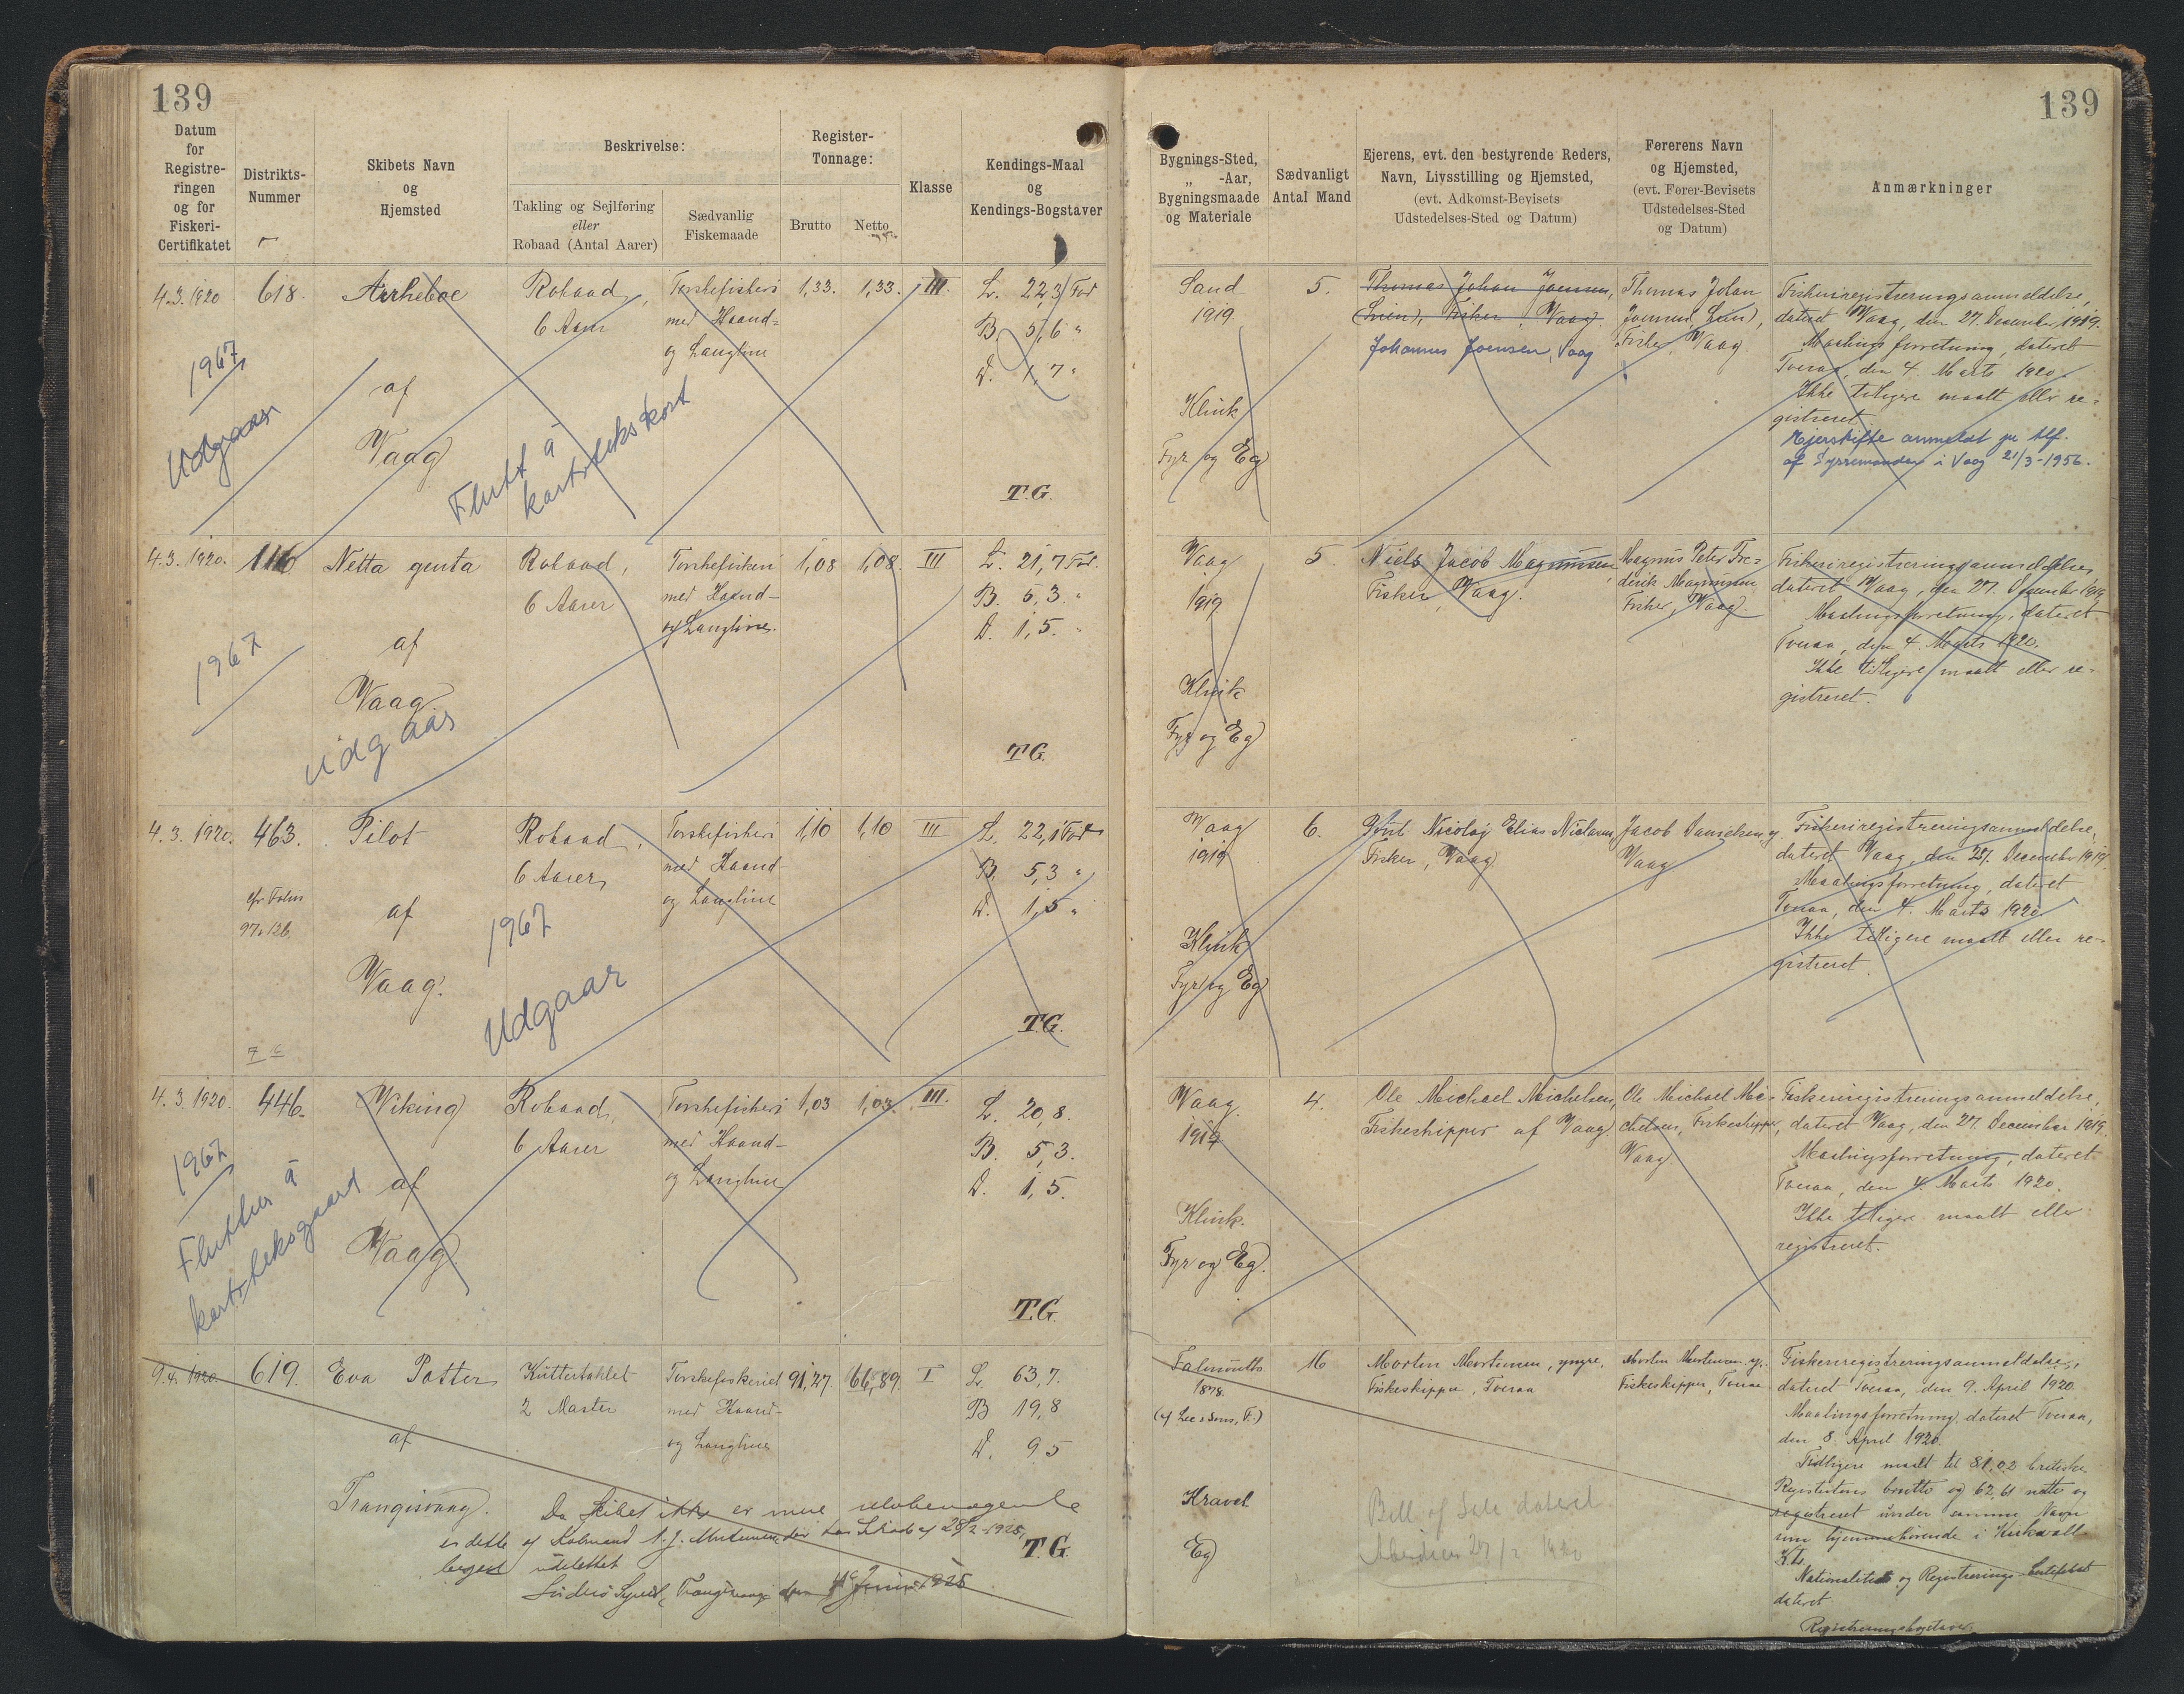 139
139
Datum
for
Registre-
ringen
og for
Fiskeri-
Certifikatet
Distrikts-
Nummer
Skibets Navn
og
Hjemsted
Beskrivelse:
Takling og Sejlføring
eller
Robaad (Antal Aarer)
Sædvanlig
Fiskemaade
Register-
Tonnage:
Brutto
Netto
Klasse
Kendings-Maal
og
Kendings-Bogstaver
Bygnings-Sted,
„ -Aar,
Bygningsmaade
og Materiale
Sædvanligt
Antal Mand
Ejerens, evt. den bestyrende Reders,
Navn, Livsstilling og Hjemsted,
(evt. Adkomst-Bevisets
Udstedelses-Sted og Datum)
Førerens Navn
og Hjemsted,
(evt. Fører-Bevisets
Udstedelses-Sted
og Datum)
Anmærkninger
4.3.1920
618.
af
Vaag
Robaad,
6 Aarer
Torskefiskeri
med Haand-
og Langline
1,33.
1,33.
III.
L. 22,3 Fod
B. 5,6 "
D. 1,7 "
T.G.
1967
Udgaar
Flutt á
kartotekskort
Sand
1919.
Klink
Fyr og Eg
5.
Thomas Johan Joensen,
Fisker, Vaag.
Johannes Joensen, Vaag
Thomas Johan
Fisker, Vaag.
Fiskeriregistreringsanmeldelse,
dateret Vaag, den 27. December 1919.
Maalingsforretning, dateret
Tveraa, den 4. Marts 1920.
Ikke tidligere maalt eller re-
gistreret.
Ejerskifte anmeldt pr tlf.
af Sysselmanden i Vaag 21/3-1956.
4.3.1920.
116
Netta genta
af
Vaag.
Robaad,
6 Aarer
Torskefiskeri
med Haand-
og Langline.
1,08
1,08.
III
L. 21,7 Fod.
B. 5,3. "
D. 1,5. "
T.G.
1967
Udgaar
Vaag
1919
Klink
Fyr og Eg
5.
Niels Jacob Magnussen,
Fisker, Vaag.
Magnus Peter Fre-
derik Magnussen
Fisker, Vaag.
Fiskeriregistreringsanmeldelse,
dateret Vaag, den 27. December 1919.
Maalingsforretning, dateret
Tveraa, den 4. Marts 1920.
Ikke tidligere maalt eller re-
gistreret.
4.3.1920.
463.
cfr. Folio
97 & 126.
Pilot
af
Vaag.
Robaad,
6 Aarer
Torskefiskeri
med Haand-
og Langline
1,10
1,10
III
L. 22,1 Fod
B. 5,3 "
D. 1,5 "
T.G.
1967
Udgaar
Vaag
1919
Klink
Fyr og Eg
6.
Nicolaj Elias Niclasen
Fisker, Vaag.
Jacob Danielsen
Vaag
Fiskeriregistreringsanmeldelse,
dateret Vaag, den 27. December 1919.
Maalingsforretning, dateret
Tveraa, den 4. Marts 1920
Ikke tidligere maalt eller re-
gistreret.
4.3.1920.
446.
Viking
af
Vaag.
Robaad,
6 Aarer
Torskefiskeri
med Haand-
og Langline
1,03
1,03.
III.
L. 20,8.
B. 5,3.
D. 1,5.
T.G.
1967
Fluttur á
Vaag.
1919
Klink.
Fyr og Eg.
4.
Ole Michael Michelsen,
Fiskeskipper af Vaag.
Ole Michael Mi-
chelsen, Fiskeskipper,
Vaag.
Fiskeriregistreringsanmeldelse,
dateret Vaag, den 27. December 1919.
Maalingsforretning, dateret
Tveraa, den 4. Marts 1920.
Ikke tidligere maalt eller
registreret.
9.4.1920.
619.
Eva Potter
af
Trangisvaag.
Kuttertaklet
2 Master
Torskefiskeriet
med Haand-
og Langline
91,27.
66,89.
I
L. 63,7.
B 19,8
D. 9 5
T.G.
Da Skibet ikke er mere
Trangisvaag den Juni 1925
Falmouth
1878.
Kravel
Eg
16
Morten Mortensen, yngre,
Fiskeskipper, Tveraa
Bill of Sale dateret
Morten Mortensen y.,
Fiskeskipper, Tveraa
Fiskeriregistreringsanmeldelse,
dateret Tveraa, den 9. April 1920.
Maalingsforretning, dateret Tveraa,
den 8. April 1920.
Tidligere maalt til 81,02 britiske
Registertons brutto og 62,61 netto og
registreret under samme Navn
hjemmehørende i Kirkwall.
Nationalitets og Registrerings-Certifikat
dateret
Registreringsbogstaver